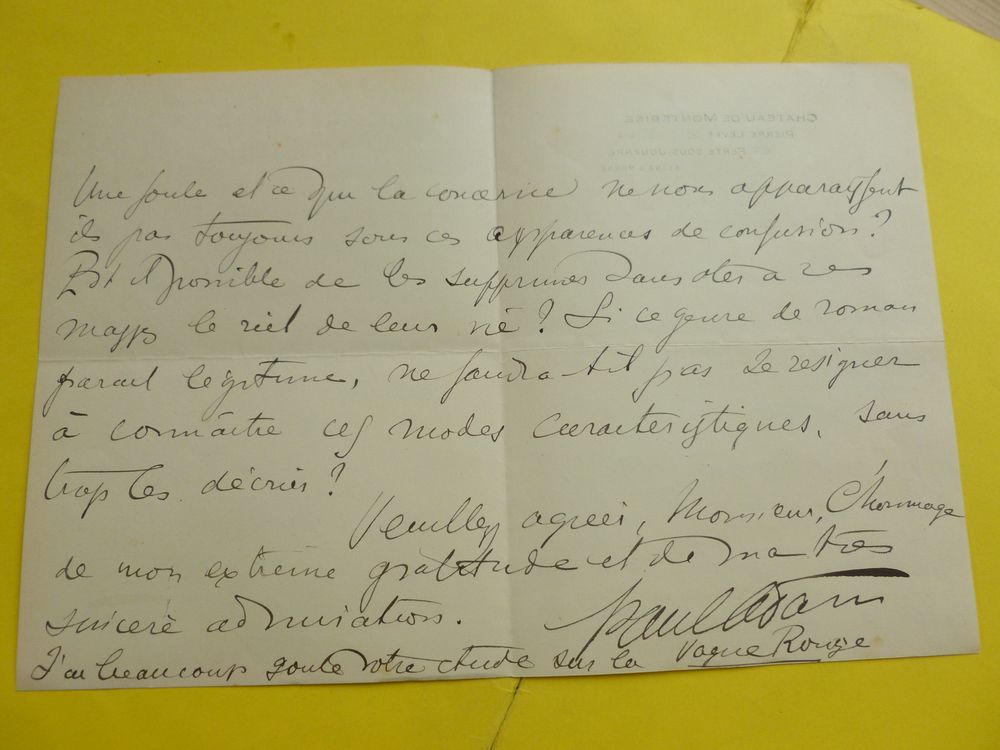 CHATEAU DE MONTEBISE
PIERRE LEVÉE
FERTÉ SOUS JOUARRE
Une foule et ce qui la concerne ne nous apparaissent
ils pas toujours sous ces apparences de confusion?
Est il possible de les supprimer sans ôter à ces
masses le réel de leur vie? Si ce genre de roman
parait légitime, ne faudra-t-il pas se resigner
à connaître ces modes caractéristiques, sans
trop les décrier?
Veuillez agréer, Monsieur, l'hommage
de mon extrême gratitude et de ma très
sincère admiration.
Paul Adam
J'ai beaucoup gouté votre étude sur la Vague Rouge